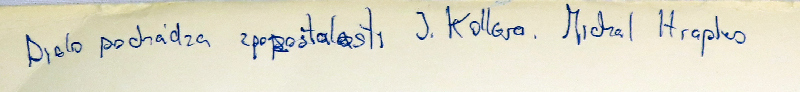 Dielo pochádza z pozostalosti J. Kollera. Michal Hrapko